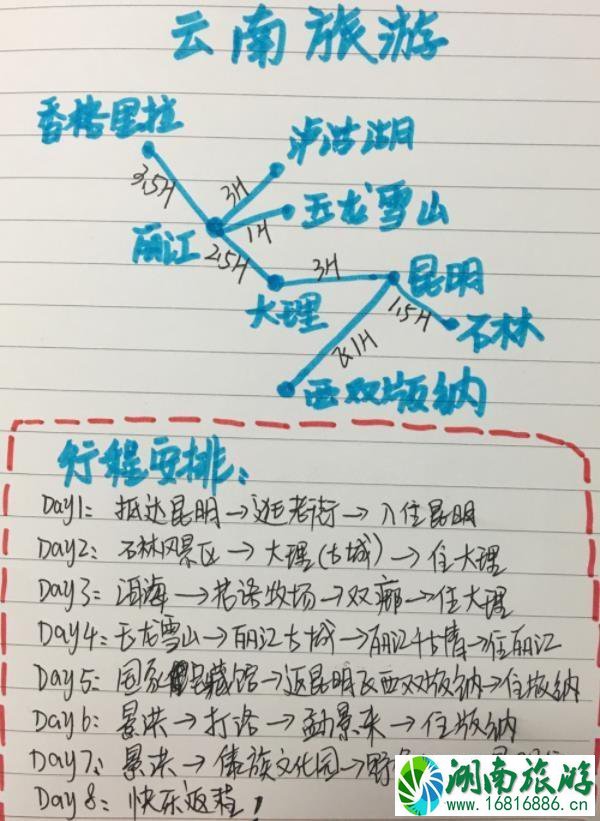 云南旅游
香格里拉
泸沽湖
3.5H
3H
玉龙雪山
1H
丽江
2.5H
3H
昆明
大理
1.5H
石林
8.1H
西双版纳
行程安排:
Day1: 抵达昆明→逛老街→入住昆明
Day2: 石林风景区→大理(古城)→住大理
Day3: 洱海→花语牧场→双廊→住大理
Day4: 玉龙雪山→丽江古城→丽江千古情→住丽江
Day5: 国家宝藏馆→返昆明飞西双版纳→住版纳
Day6: 景洪→打洛→勐景来→住版纳
Day7: 景洪→傣族文化园→野
Day8: 快乐返程!
湖南旅游
www.16816886.cn